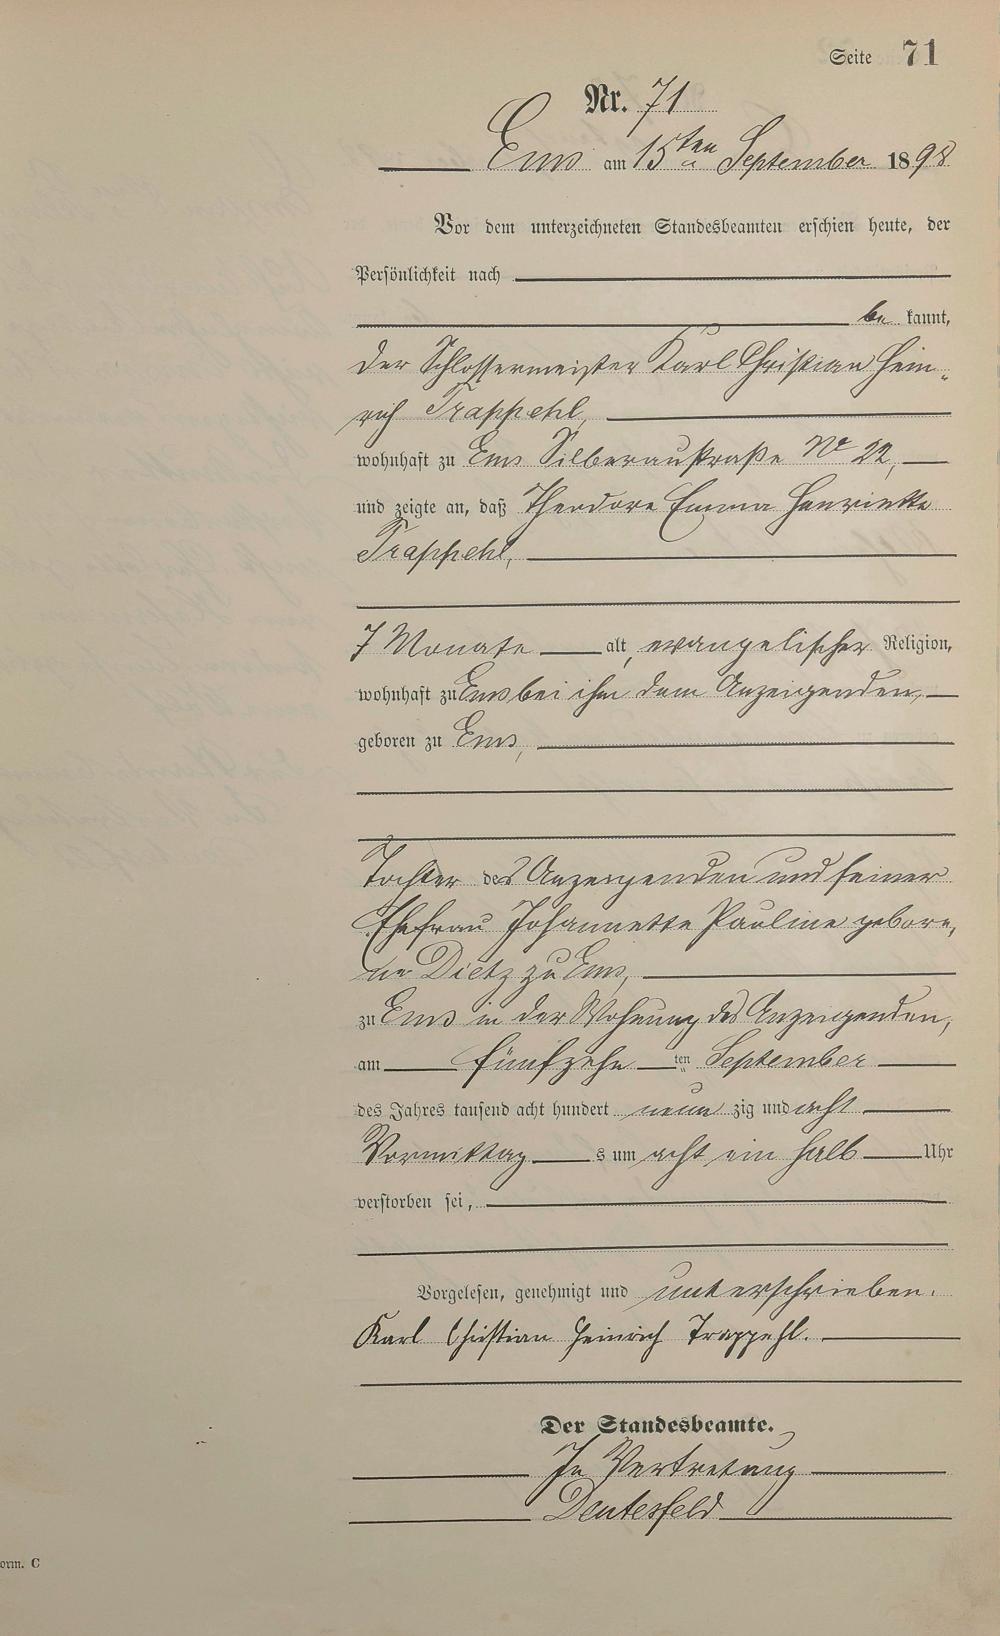 Seite 71
Nr. 71
Ems am 15ten September 1898
Vor dem unterzeichneten Standesbeamten erschien heute, der
Persönlichkeit nach
be kannt,
der Schlossermeister Karl Christian Hein-
rich Trappehl,
wohnhaft zu Ems Silberaustraße No 22,
und zeigte an, daß Theodore Emma Henriette
Trappehl,
7 Monate alt, evangelischer Religion,
wohnhaft zu Ems bei ihm dem Anzeigenden,
geboren zu Ems,
Tochter des Anzeigenden und seiner
Ehefrau Johannette Pauline gebore,
ne Dietz zu Ems,
zu Ems in der Wohnung des Anzeigenden,
am fünfzehn ten September
des Jahres tausend acht hundert neun zig und acht
Vormittag s um acht ein halb Uhr
verstorben sei,
Vorgelesen, genehmigt und unterschrieben.
Karl Christian Heinrich Trappehl.
Der Standesbeamte.
In Vertretung
Deutesfeld
orm. C